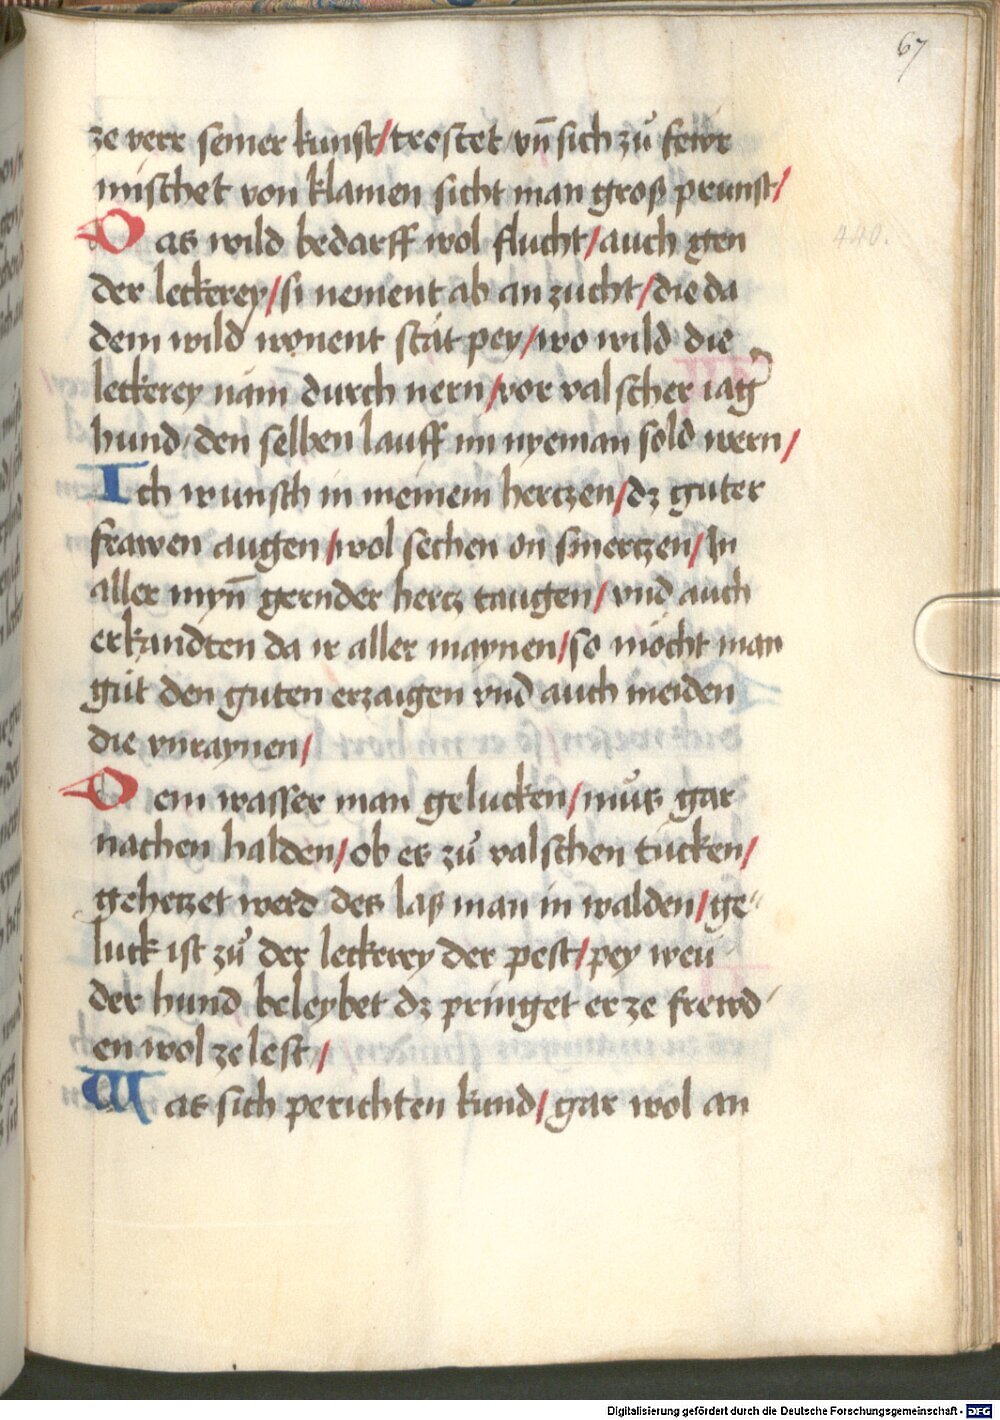 67
ze verr seiner kunst/trostet vn̄ sich zů fewr
mischet von klainen sicht man groß prunst/
Das wild bedarff wol flucht/auch gen
440.
der leckerey/si nement ab an zucht/die da
dem wild wonent stät pey/wo wild die
leckerey näm durch nern/vor valscher iag
hund/den selben lauff im nyeman sold wern/
Ich wunsch in meinem hertzen/dz guter
frawen augen/wol sechen on smertzen/In
aller myn̄ gernder hertz taugen/vnd auch
erkandten da ir aller maynen/so möcht man
güt den guten erzaigen vnd auch meiden
die vnraynen/
Dem wasser man gelucken/můs gar
nachen halden/ob es zů valschen tücken/
gehetzet werd des laß man in walden/ge"
luck ist zů der leckerey der pest/pey weu
der hund beleybet dz pringet er ze frewd
en wol ze lest/
Was sich perichten kund/gar wol an
Digitalisierung gefördert durch die Deutsche Forschungsgemeinschaft - DFG